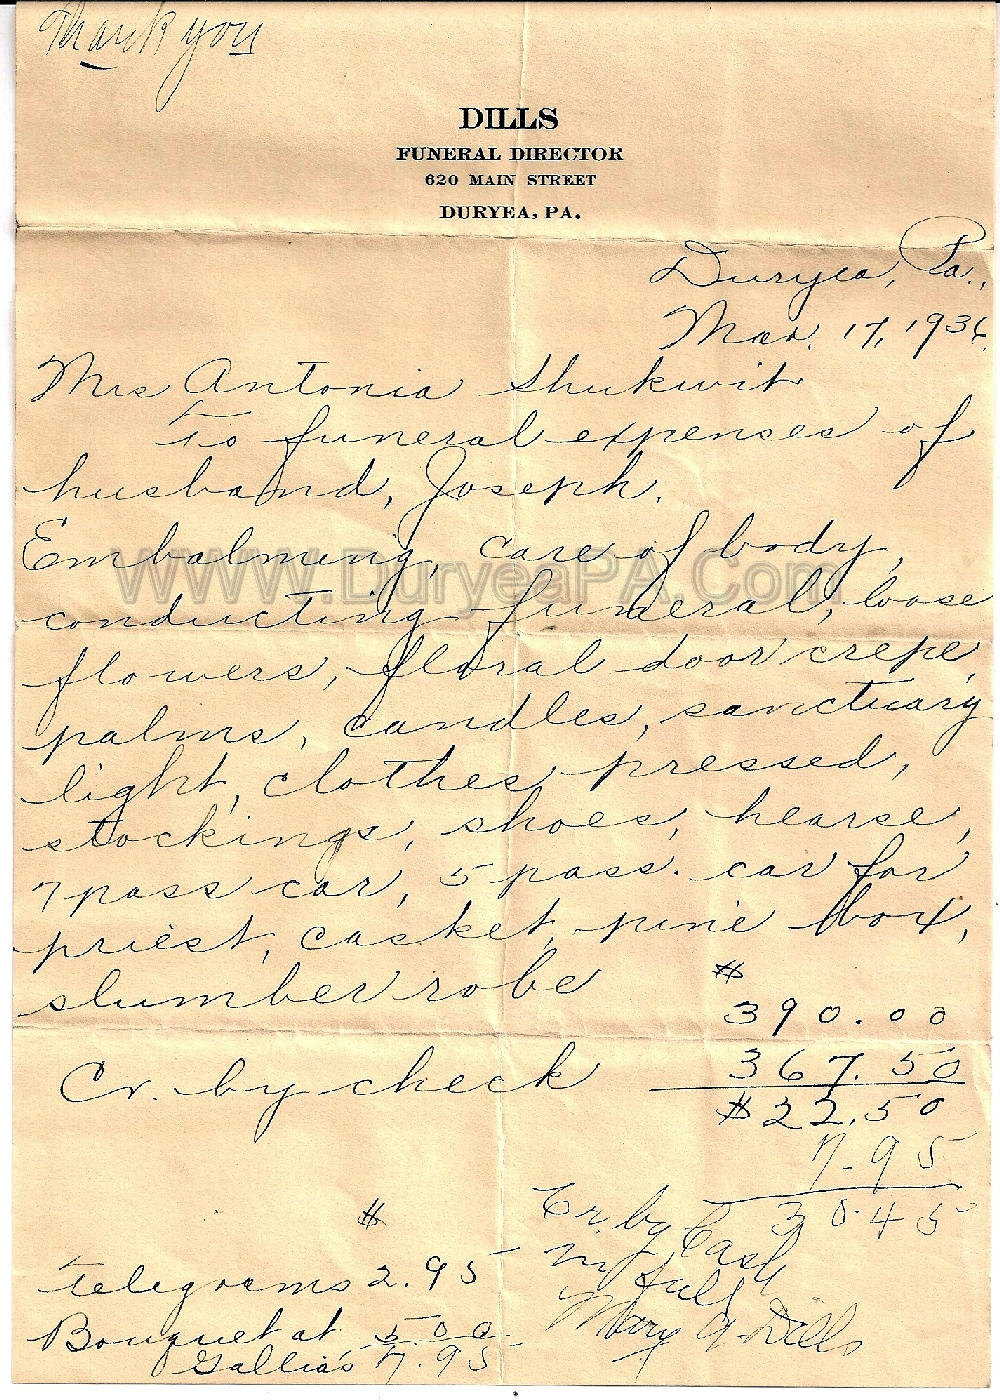 Thank you
DILLS
FUNERAL DIRECTOR
620 MAIN STREET
DURYEA, PA.
Duryea, Pa.,
Mar. 17, 1936.
Mrs Antonia Shukwit
To funeral expenses of
husband, Joseph.
Embalming, care of body,
WWW.DuryeaPA.Com
conducting funeral, loose
flowers, floral door crepe,
palms, candles, sanctuary
light, clothes pressed,
stockings, shoes, hearse,
7 pass car, 5 pass. car for
priest, casket, pine box,
slumber robe
$
390.00
Cr. by check 367.50
$22.50
7.95
30.45
Cr. by Cash
in full
Mary A Dills
$
telegrams 2.95
Bouquet at 5.00
Gallia's 7.95